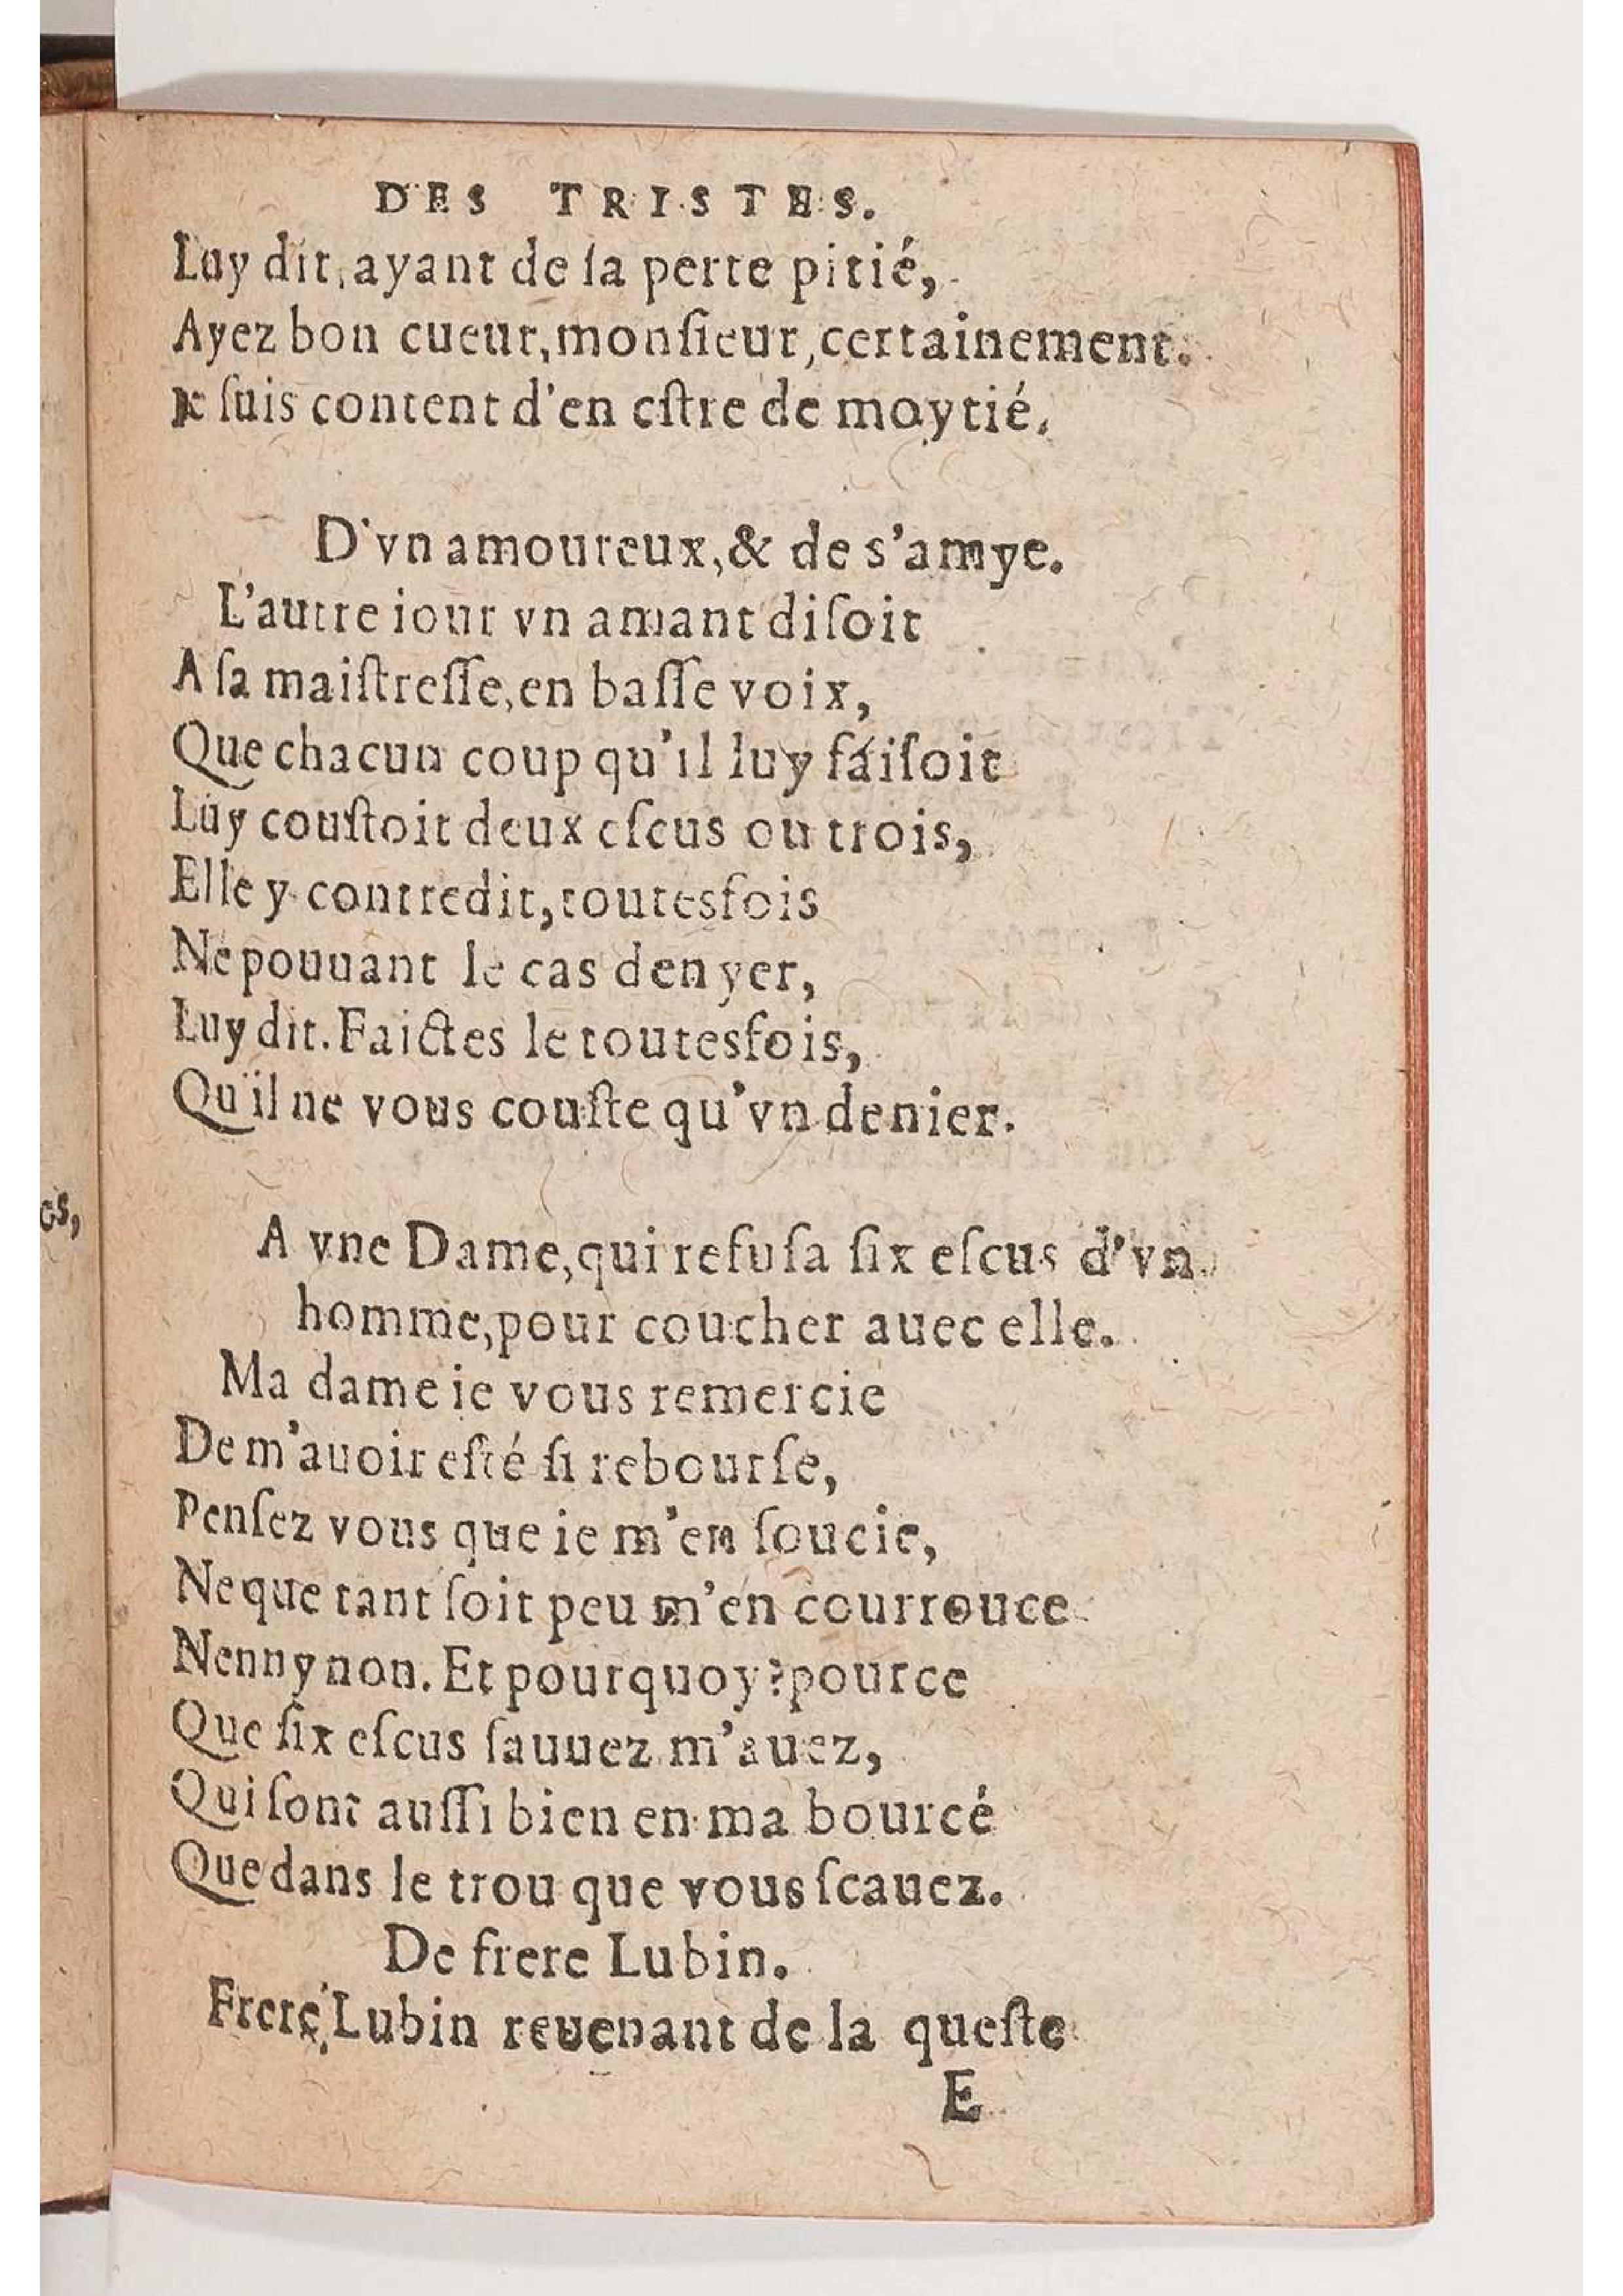 DES TRISTES.
Luy dit, ayant de ſa perte pitié,
Ayez bon cueur, monſieur, certainement.
Ie ſuis content d'en eſtre de moytié.
D'vn amoureux, & de s'amye.
L'autre iour vn amant diſoit
A ſa maiſtreſſe, en baſſe voix,
Que chacun coup qu'il luy faiſoit
Luy couſtoit deux eſcus ou trois,
Elle y contredit, toutesfois
Ne pouuant le cas denyer,
Luy dit. Faictes le toutesfois,
Qu'il ne vous couſte qu'vn denier.
es,
A vne Dame, qui refuſa ſix eſcus d'vn
homme, pour coucher auec elle.
Ma dame ie vous remercie
De m'auoir eſté ſi rebourſe,
Penſez vous que ie m'en ſoucie,
Ne que tant ſoit peu m'en courrouce
Nenny non. Et pourquoy? pource
Que ſix eſcus ſauuez m'auez,
Qui ſont auſſi bien en ma bourcé
Que dans le trou que vous ſcauez.
De frere Lubin.
Frere Lubin reuenant de la queſte
E